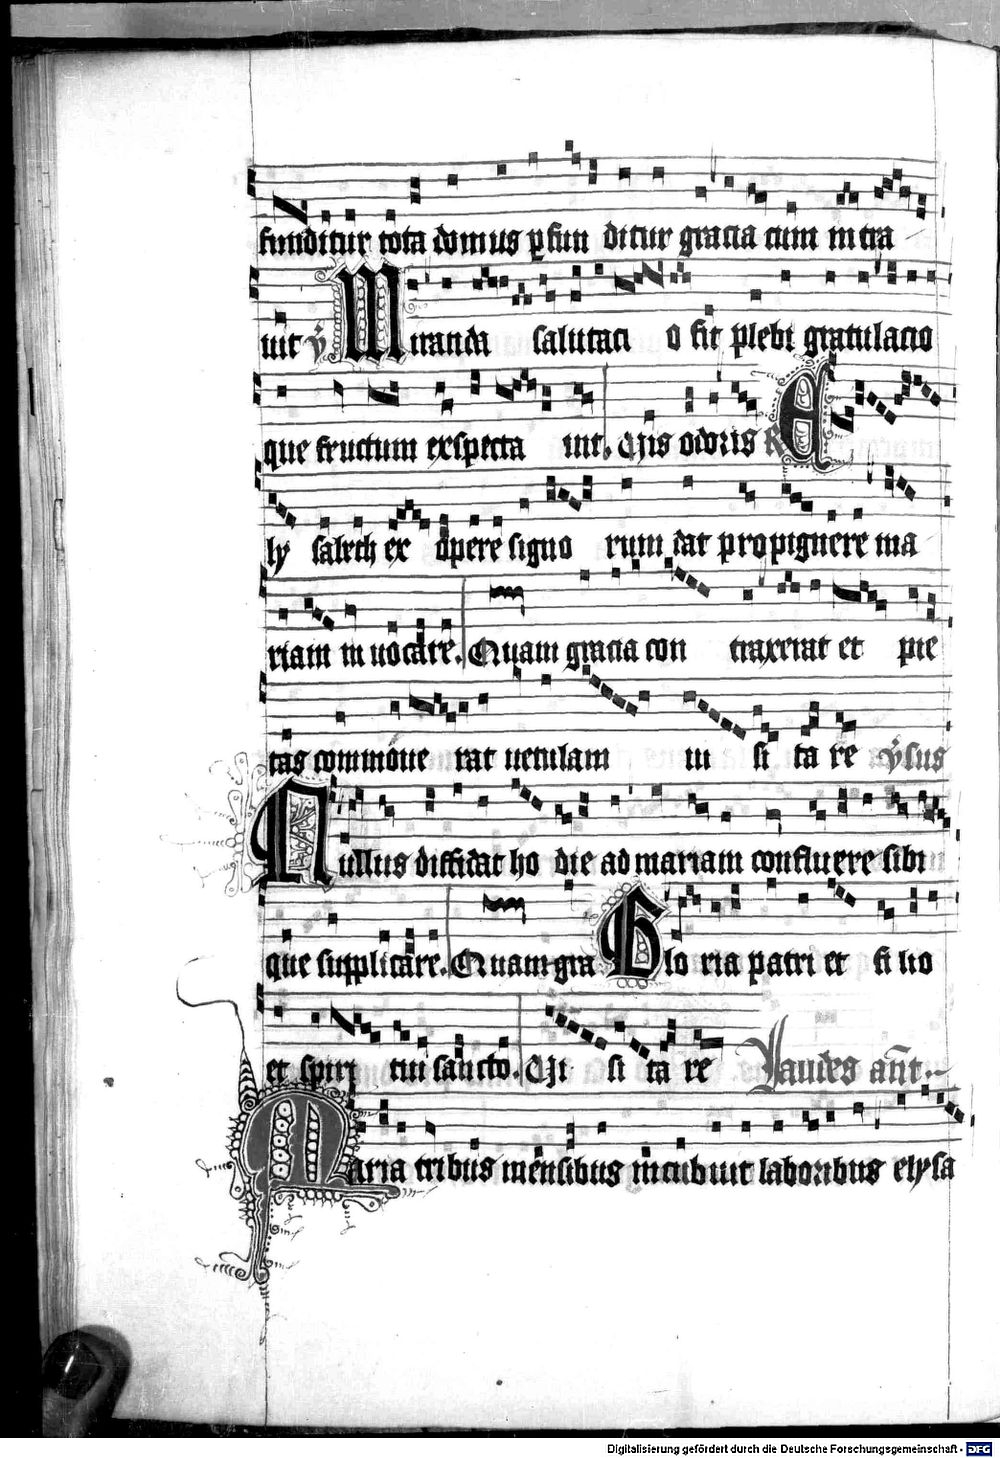 funditur tota domus ꝑfun ditur gracia cum intra
uit ỹ Miranda salutaci o fit plebi gratulacio
que fructum exspecta unt. Cuis odoris R E
ly saleth ex opere signo rum dat propignere ma
riam inuocare. Quam gracia con traxerat et pie
tas commoue rat uetulam ui si ta re ỹsus
Nullus diffidat ho die ad mariam confluere sibi
que supplicare. Quam gra Glo ria patri et fi lio
et spiri tui sancto. Vi si ta re Laudes an̄t.
Maria tribus mensibus incubuit laboribus elysa
Digitalisierung gefördert durch die Deutsche Forschungsgemeinschaft - DFG